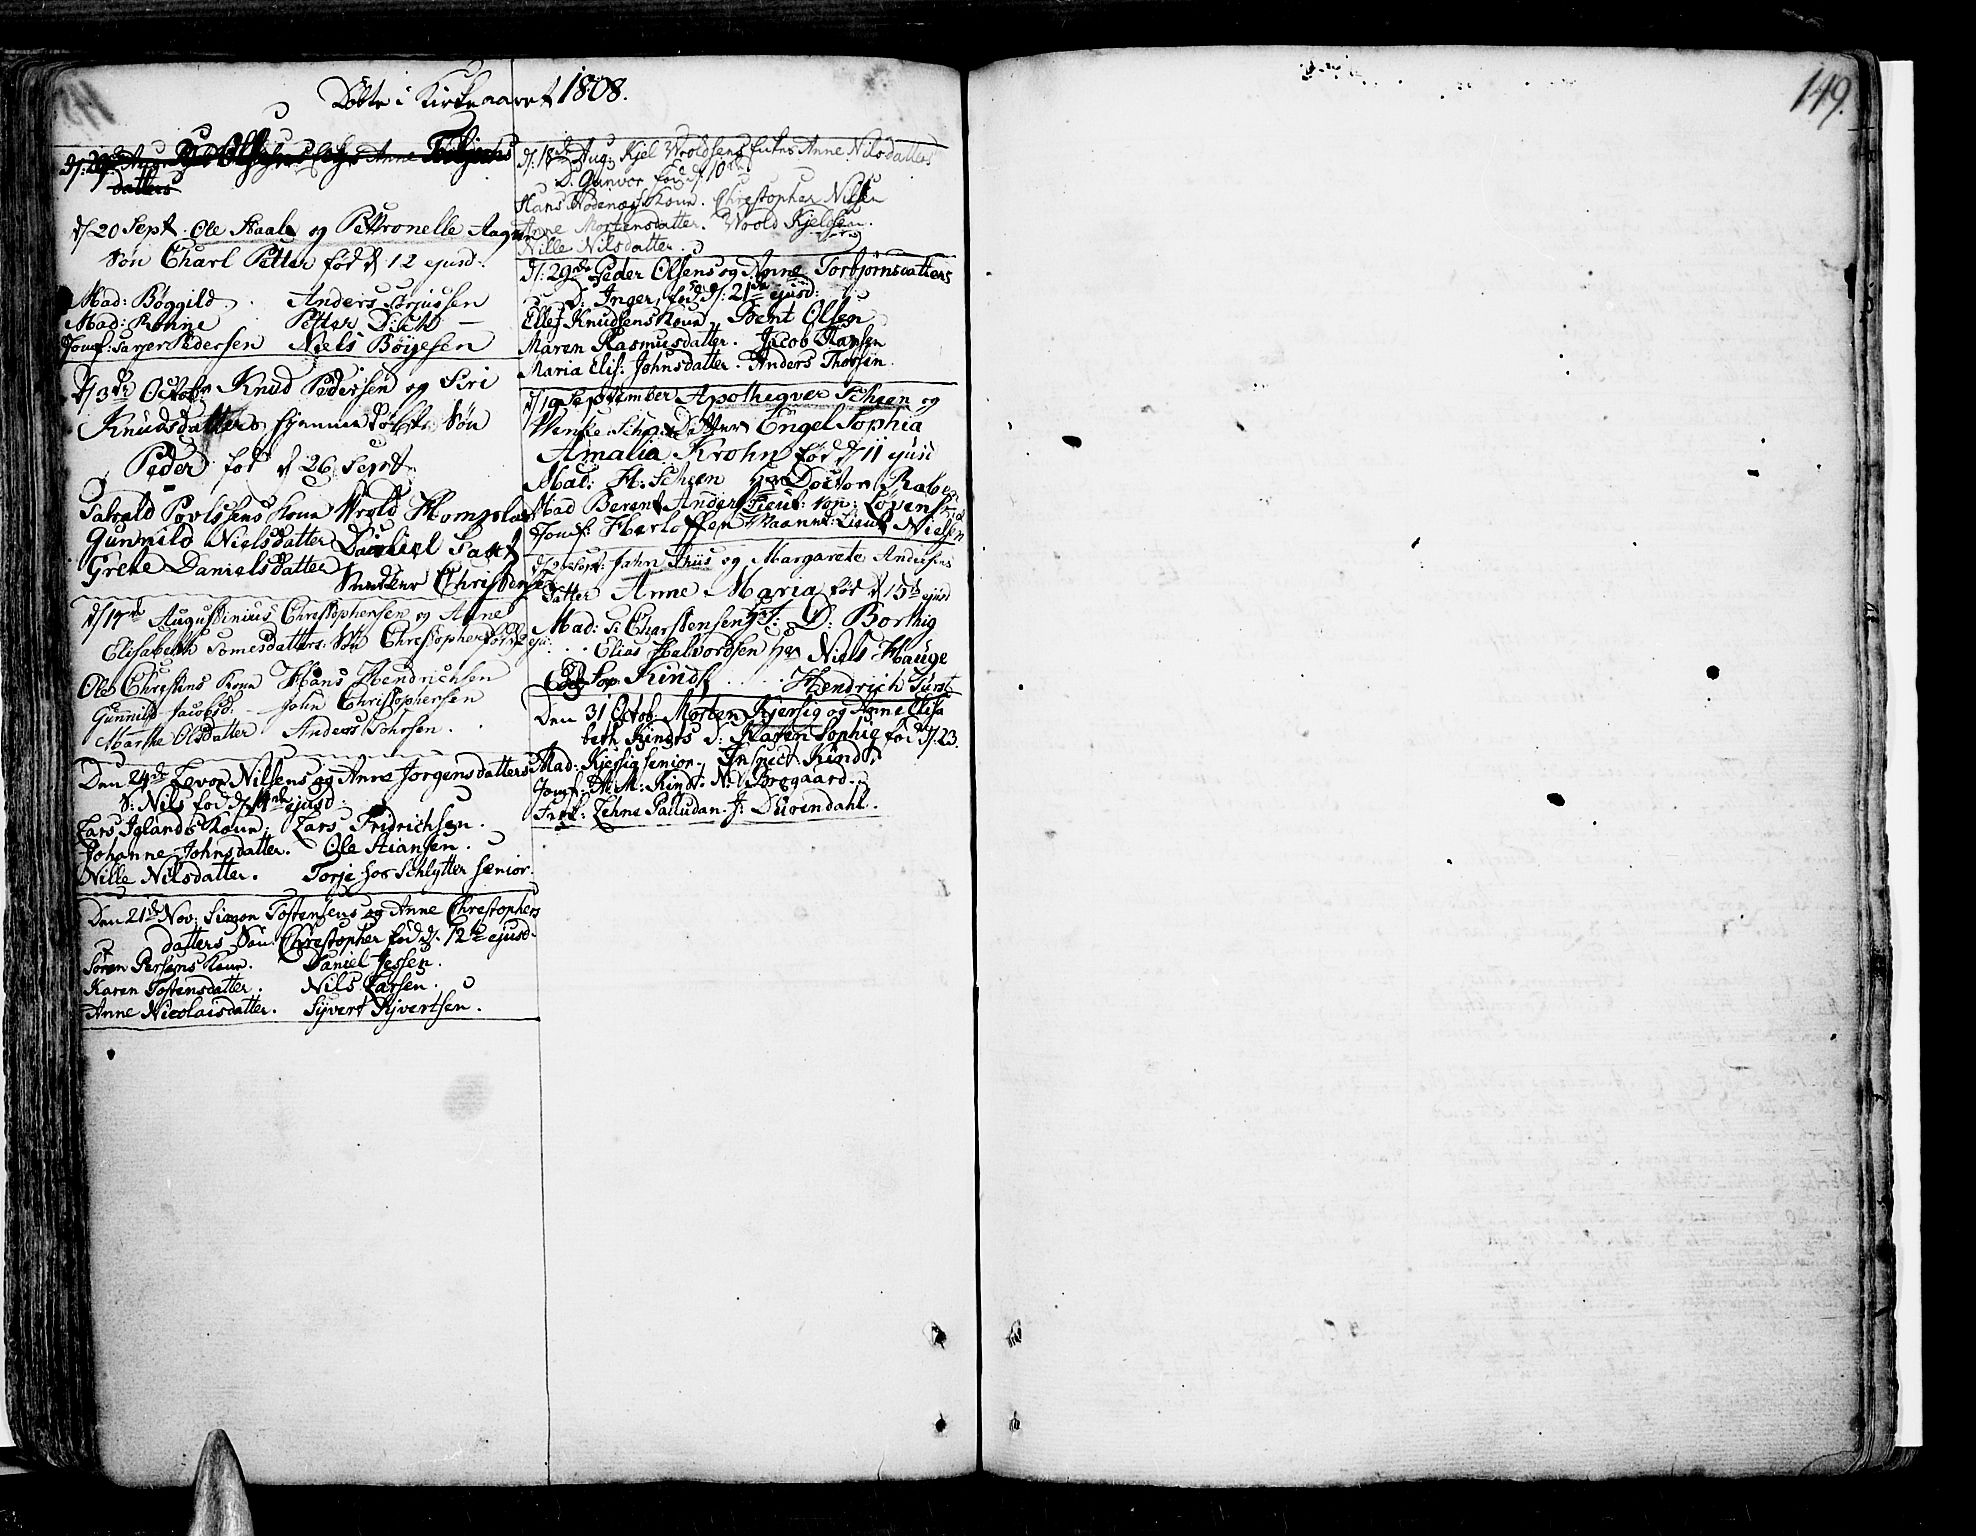 Döbte i Kirkeaaret 1808.
d: 29de Aug: Peder Olsens og Anne Torbjørns
datters
d 20 Sept. Ole Staale og Pettronelle Aagers
Søn Charl Petter fød d 12 ejusd:
Mad: Bøggild. Anders Terjussen
Mad: Røhne Petter Disch
Jomf: Pedersen Niels Böijesen
d 3de Octobr Knud Pedersen og Siri
Knudsdatters hjemmedöbte Sön
Peder fød d 26 Sept.
Salvald Povlssens Kone Wrold Homplas
Gunnild Nielsdatter Daniel
Grete Danielsdatter Christensen
d 17de Augustinius Christophersen og Anne
Elisabeth datters: Søn Christopher fød d 2 eju:
Ole Christens Kone Hans Hendrichsen
Gunnild Jacobsd. John Christophersen
Marthe Olsdatter Anders Tohrsen.
Den 24de Levor Nilsens og Anne Jørgensdatters
S: Nils fød d: 14de ejusd:
Lars Iglands Kone. Lars Fridrichsen.
Johanne Johnsdatter. Ole Stiansen.
Nille Nilsdatter. Torje hos Schlytter senior.
Den 21de Nov: Simon Tostensens og Anne Christophers
datters Søn Christopher fød d: 12te ejusd.
Søren Persens Kone. Daniel Jessen.
Karen Tostensdatter. Nils Larsen.
Anne Nicolaisdatter. Syvert Syvertsen.
d: 18de Aug: Kjel Wroldsens Anne Nilsdatters
D. Gunvor fød d: 10de
Hans Kone. Christopher Nilsen
Anne Mortensdatter. Wrold Kjeldsen.
Nille Nilsdatter.
d: 29de Peder Olsens og Anne Torbjørnsdatters
D: Inger, fød d: 21de ejusd:
Ellef Knudsens Kone. Bent Olsen
Maren Rasmusdatter. Jacob Hansen
Maria Elis: Johnsdatter. Anders Thorsen.
d 19 September Apotheqver Scheen og
Wenke Datter Engel Sophia
Amalia Krohn fød d 11 ejusd
Mad: H: Scheen Hr Doctor Rabe
Mad Berent Anders Lieut: von: Løvensk
Jomf: Herloffsen Lieut Nielsen
d Sept: Jahn Thiis og Margarete Andersens
Datter Anne Maria fød d 15de ejusd
Mad: S: Charstensen D: Borthig
Elias Halvordsen Hr Niels Hauge
Sop: Kindt Hendrich Furst
Den 31 Octob Morten Kjersig og Anne Elisa
beth Kindts D: Karen Sophie fød d: 23.
Mad: Kjersig senior. Inspect Kindt
Jomf: A: M: Kindt. N: Brogaard.
Frøk: Lehne Palludan. J: Dürendahl.
149.